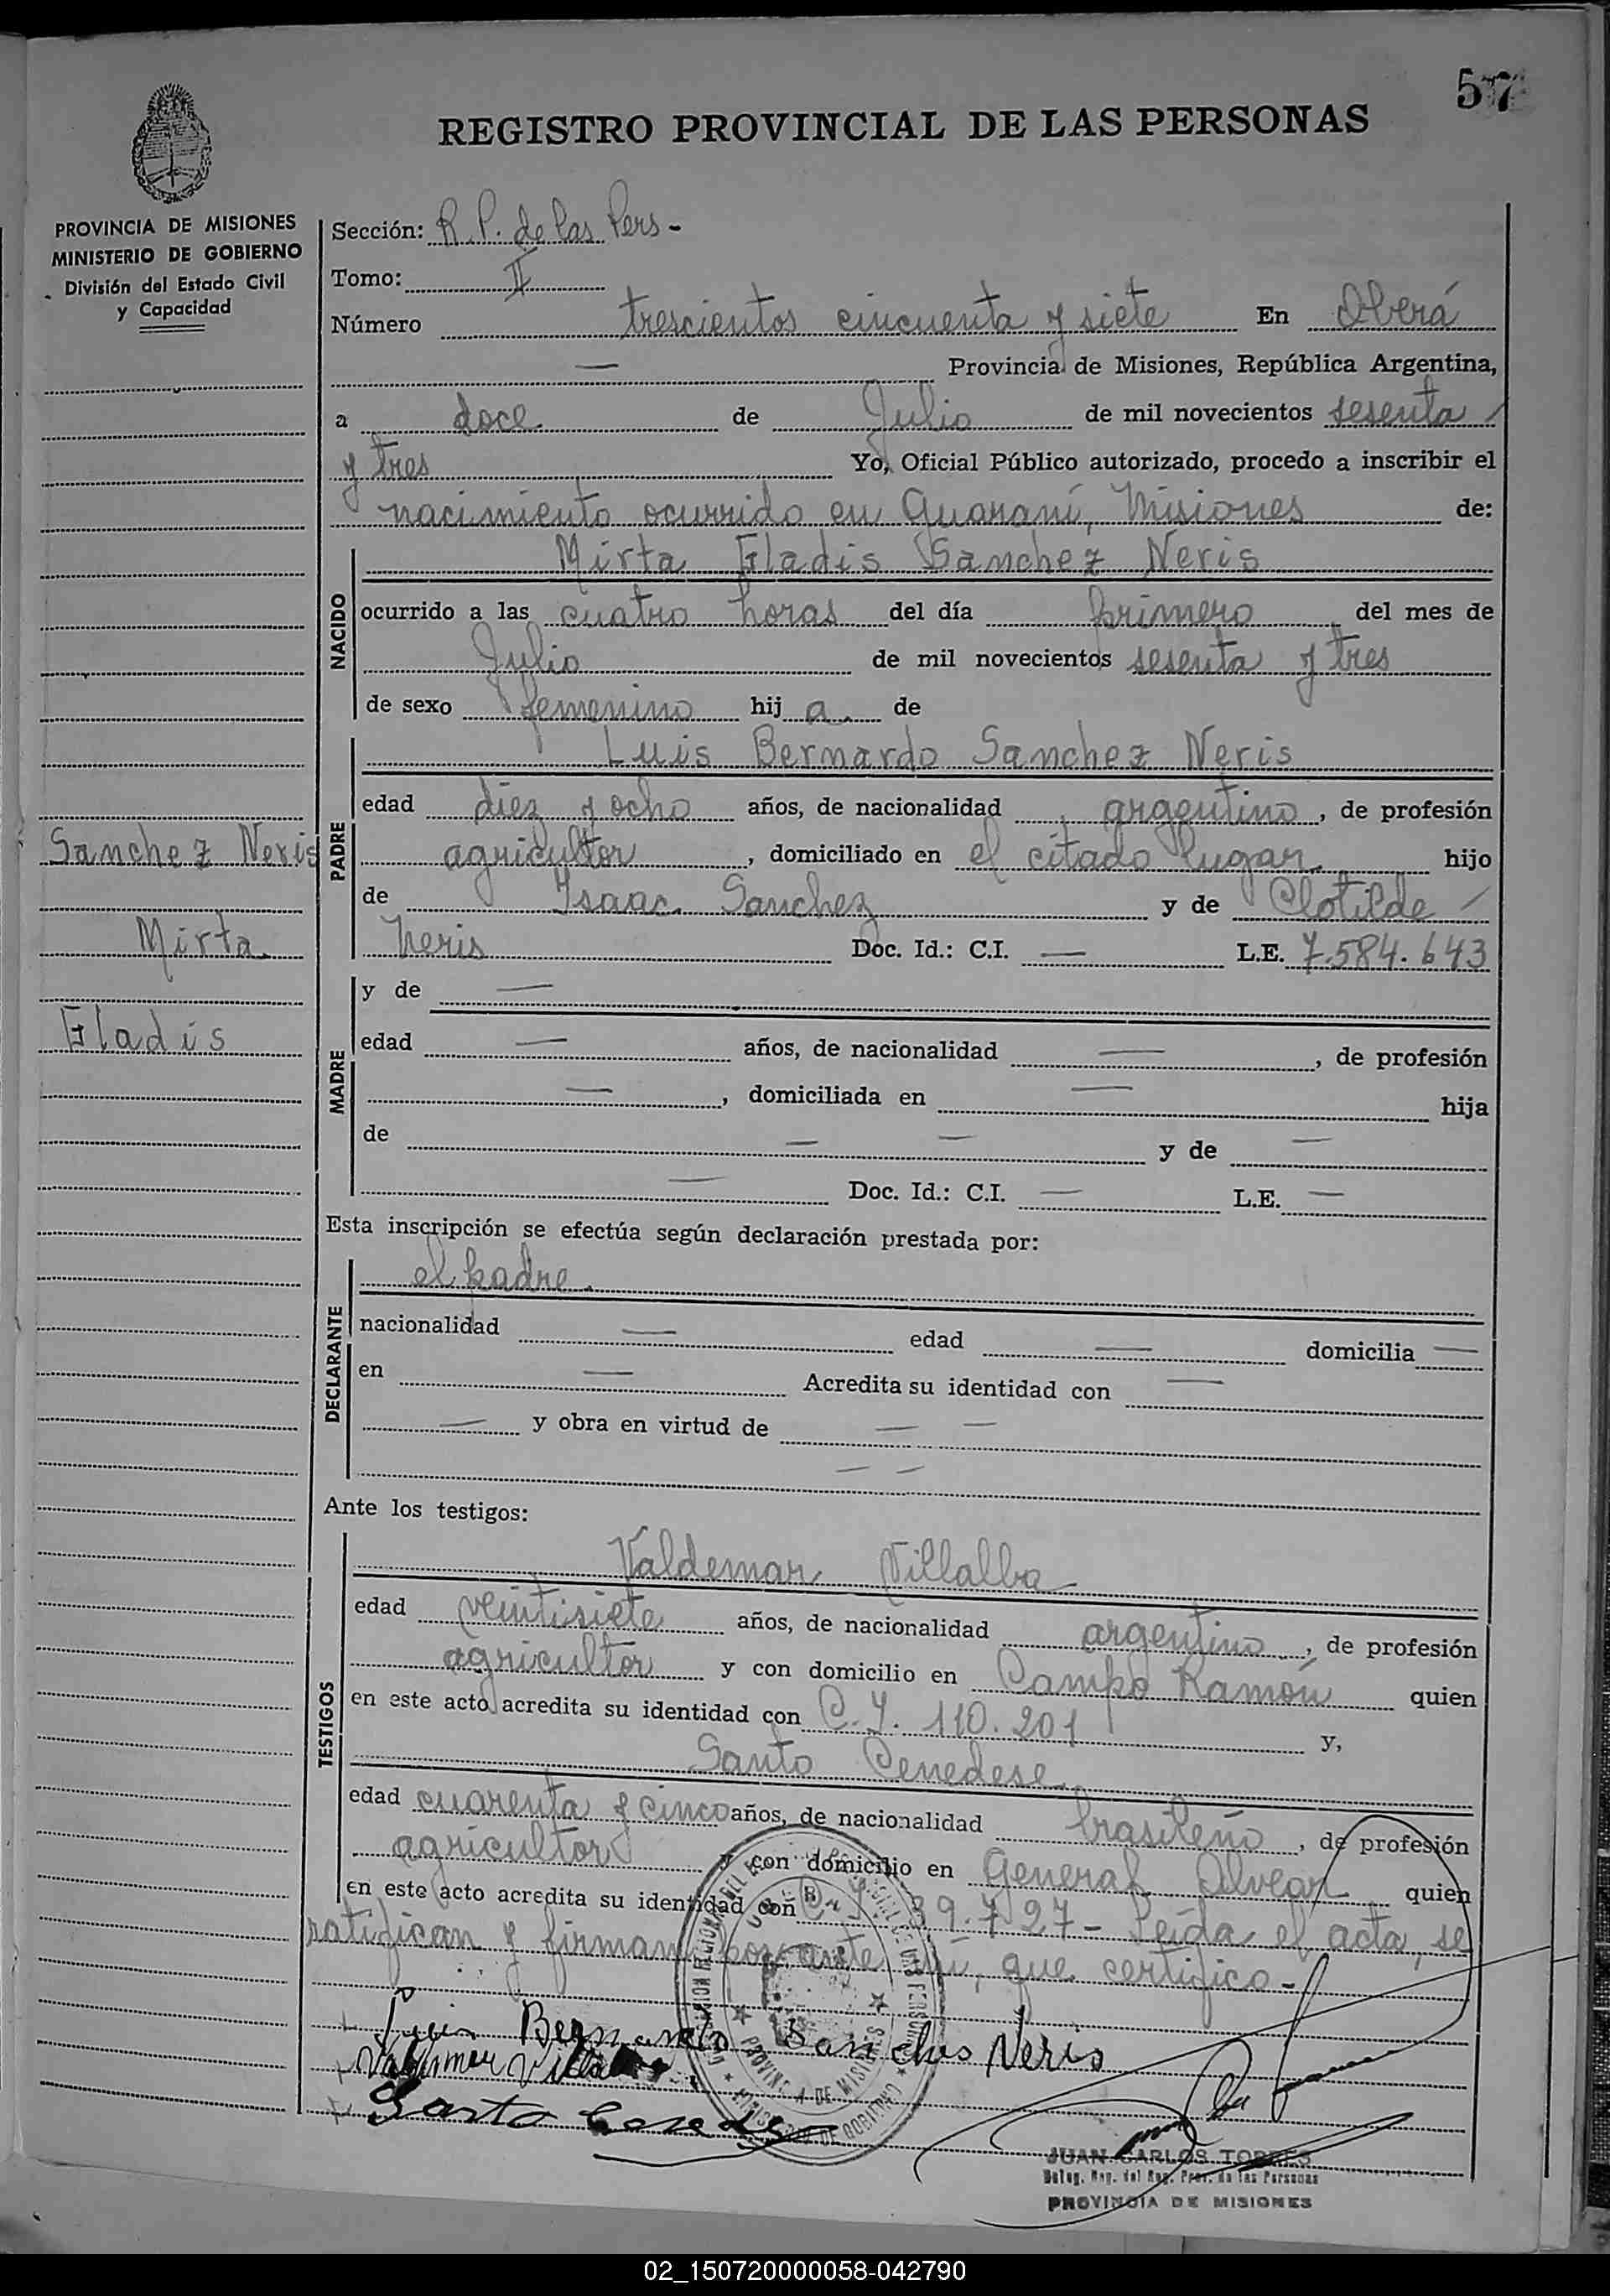 57
REGISTRO PROVINCIAL DE LAS PERSONAS
PROVINCIA DE MISIONES
MINISTERIO DE GOBIERNO
División del Estado Civil
y Capacidad
Sección: R. P. de las Pers -
Tomo: II
Número trescientos cincuenta y siete En Oberá
— Provincia de Misiones, República Argentina,
a doce de Julio de mil novecientos sesenta
y tres Yo, Oficial Público autorizado, procedo a inscribir el
nacimiento ocurrido en Guaraní, Misiones de:
NACIDO
Mirta Gladis Sanchez Neris
ocurrido a las cuatro horas del día primero del mes de
Julio de mil novecientos sesenta y tres
de sexo femenino hij a. de
PADRE
Luis Bernardo Sanchez Neris
edad diez y ocho años, de nacionalidad argentino, de profesión
Sanchez Neris
Mirta
Gladis
agricultor, domiciliado en el citado lugar hijo
de Isaac Sanchez y de Clotilde
Neris Doc. Id.: C.I. — L.E. 7.584.643
MADRE
y de —
edad — años, de nacionalidad —, de profesión
—, domiciliada en — hija
de — — y de —
— Doc. Id.: C.I. — L.E. —
Esta inscripción se efectúa según declaración prestada por:
DECLARANTE
el padre.
nacionalidad — edad — domicilia —
en — Acredita su identidad con —
— y obra en virtud de — —
— —
Ante los testigos:
TESTIGOS
Valdemar Villalba
edad veintisiete años, de nacionalidad argentino, de profesión
agricultor y con domicilio en Campo Ramón quien
en este acto acredita su identidad con C.I. 110.201 y,
Santo Cenedese
edad cuarenta y cinco años, de nacionalidad brasileño, de profesión
agricultor y con domicilio en General Alvear quien
en este acto acredita su identidad con C.I. 39.727 - Leída el acta, se
ratifican y firman por ante mí, que certifico -
Luis Bernardo Sanches Neris
Valdemar Villalba
Santo Cenedese
PROVINCIA DE MISIONES
MINISTERIO DE GOBIERNO
JUAN CARLOS TORRES
Deleg. Reg. del Reg. Prov. de las Personas
PROVINCIA DE MISIONES
02_150720000058-042790